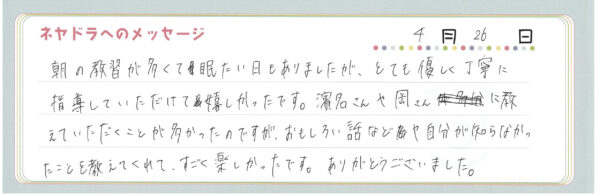 ネヤドラへのメッセージ
4月26日
朝の教習が多くて眠たい日もありましたが、とても優しく丁寧に
指導していただけて嬉しかったです。濱名さんや岡さんに教
えていただくことが多かったのですが、おもしろい話などや自分が知らなかっ
たことを教えてくれて、すごく楽しかったです。ありがとうございました。